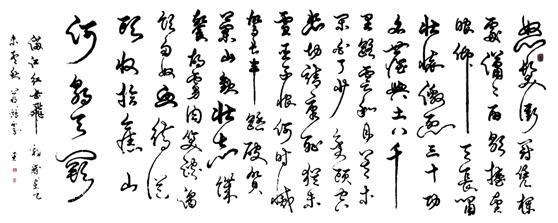 怒髮衝冠憑欄
處瀟瀟雨歇擡望
眼仰天長嘯
壯懷激烈三十功
名塵與土八千
里路雲和月莫等
閒白了少年頭空
悲切靖康恥猶未
雪臣子恨何時滅
駕長車踏破賀
蘭山缺壯志饑
餐胡虜肉笑談渴
飲匈奴血待從
頭收拾舊山
河朝天闕
滿江紅岳飛